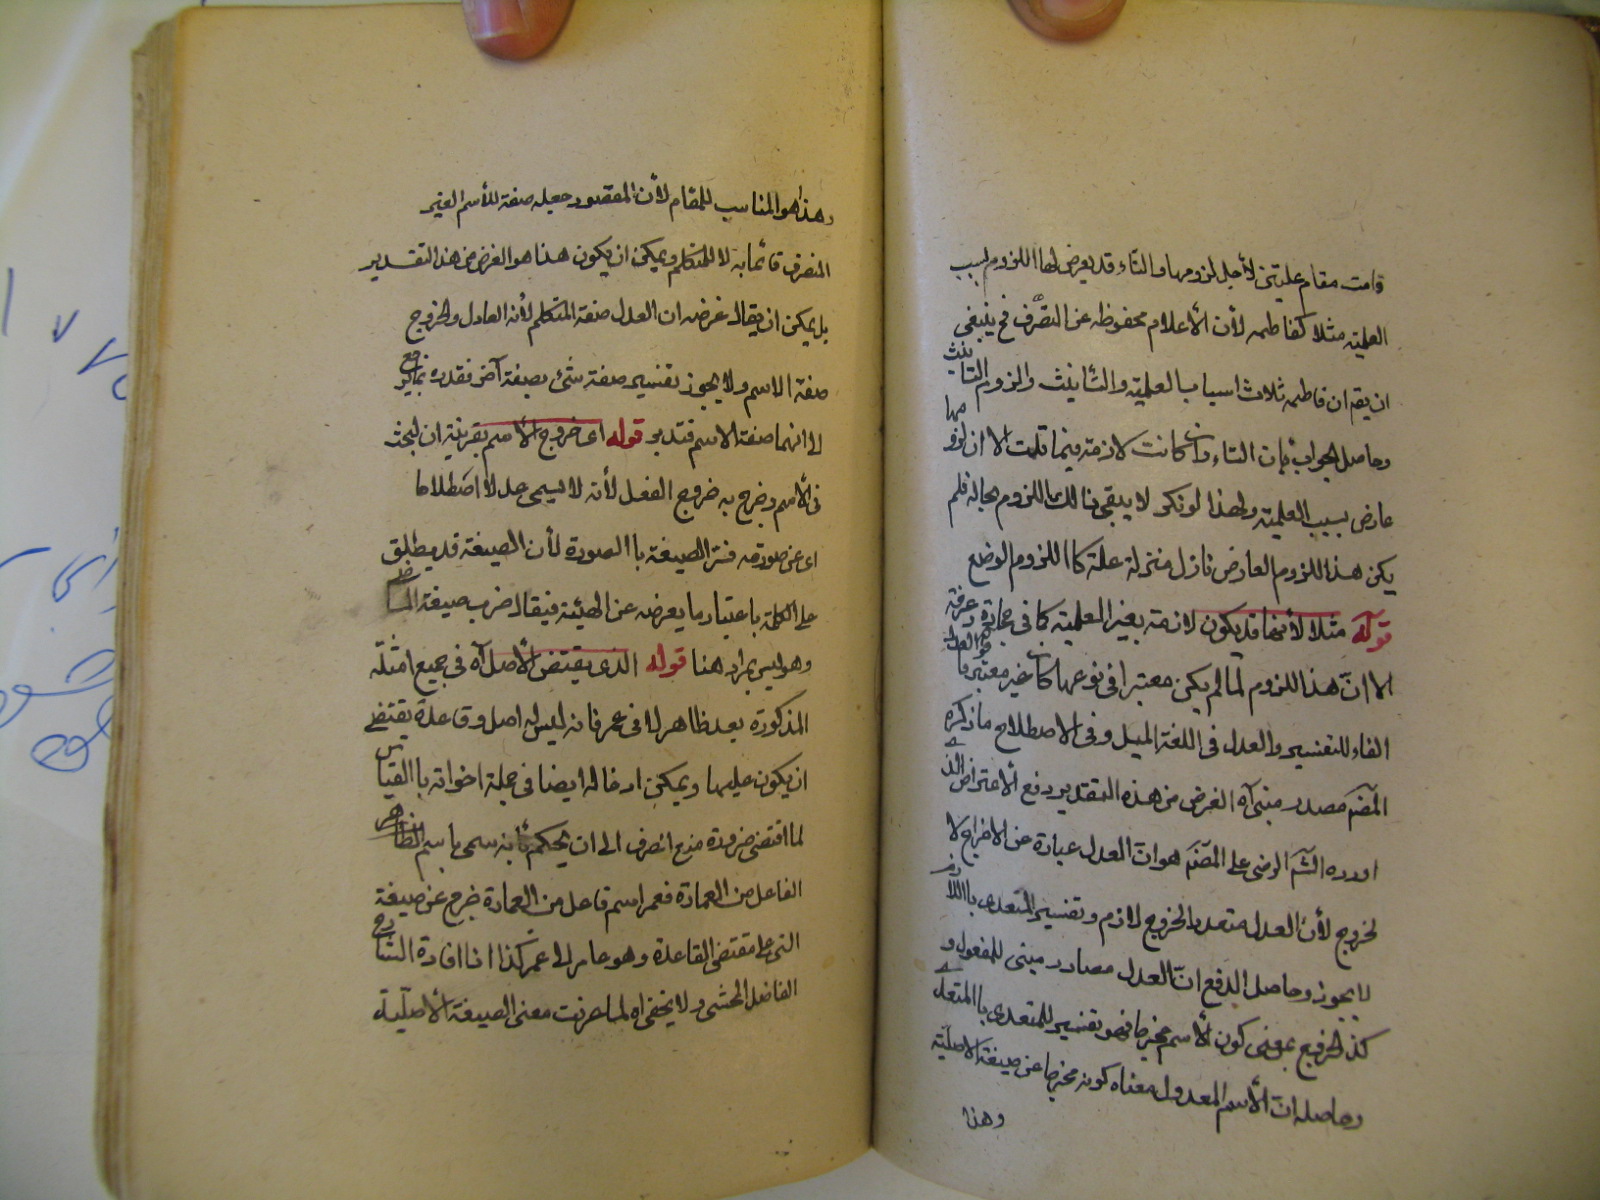 قامت مقام علتين لأجل لزومها والتاء قد يعرض لها اللزوم بسبب
العلمية مثلا كفاطمه لأن الأعلام محفوظه عن التصرف فح ينبغي
ان يقم ان فاطمه ثلاث اسباب العلمية والتأنيث ولزوم التأنيث
وحاصل الجواب بأن التاء وان كانت لازمة فيما قلت الا ان لزومها
عارض بسبب العلمية ولهذا لو نكر لا يبقى ذالك اللزوم بحاله فلم
يكن هذا اللزوم العارض نازل منزلة علة كا اللزوم الوضع
قوله مثلا لأنها قد يكون لازمة بغير العلمية كما في حجارة وغرفة
الا ان هذا اللزوم لما لم يكن معتبرا في نوعها كان غير معتبر قوله فالعدل
الفاء للتفسير والعدل في اللغة الميل وفي الاصطلاح ما ذكره
المصنم مصدر مبني آه الغرض من هذه التقدير دفع الأعتراض الذي
اورده الشم الرضي على المصنم هو ان العدل عبارة عن الاخراج لا
لخروج لأن العدل متعد والخروج لازم وتفسير المتعدي باللازم
لا يجوز وحاصل الدفع ان العدل مصادر مبني للمفعول و
كذ الخروج بمعنى كون الأسم مخرجا فهو تفسير للمتعدي باالمتعدي
وحاصله ان الأسم المعدول معناه كونه مخرجا عن صيغة الاصلية
وهذا
وهذا هو المناسب للمقام لأن المقصود جعله صفة للأسم الغير
المنصرف قائما به لا للمتكلم ويمكن ان يكون هذا هو الغرض من هذ التقدير
بل يمكن ان يقال غرضه ان العدل صفة المتكلم لأنه العادل والخروج
صفة الاسم ولا يجوز تفسير صفة شئ بصفة آخر فقدره بما يرجع
الى انهما صفة الاسم فتدبر قوله اى خروج الأسم بقرينة ان البحث
في الأسم وخرج به خروج الفعل لأنه لا يسمى عدلا اصطلاحا
اى عن صورته فسر الصيغة باالصورة لأن الصيغة قد يطلق
على الكلمة باعتبار ما يعرضه عن الهيئة فيقال ضرب صيغة الماضي
وهو ليس بمراد هنا قوله الذي يقتضى الأصل آه في جميع امثلة
المذكورة يعد ظاهر الا في عمر فانه ليس له اصل وقاعدة يقتضى
ان يكون عليها ويمكن ادخاله ايضا في جملة اخواته باالقياس
لما اقتضى ضرورة منع الصرف الى ان يحكم بأنه سمى باسم الظاهر
الفاعل من العمارة فعمر اسم فاعل من العمارة خرج عن صيغة
التى على مقتضى القاعدة وهو عامر الى عمر كذا افادة الشارح
الفاضل المحشى ولا يخفى اه لما عرفت معنى الصيغة الأصلية